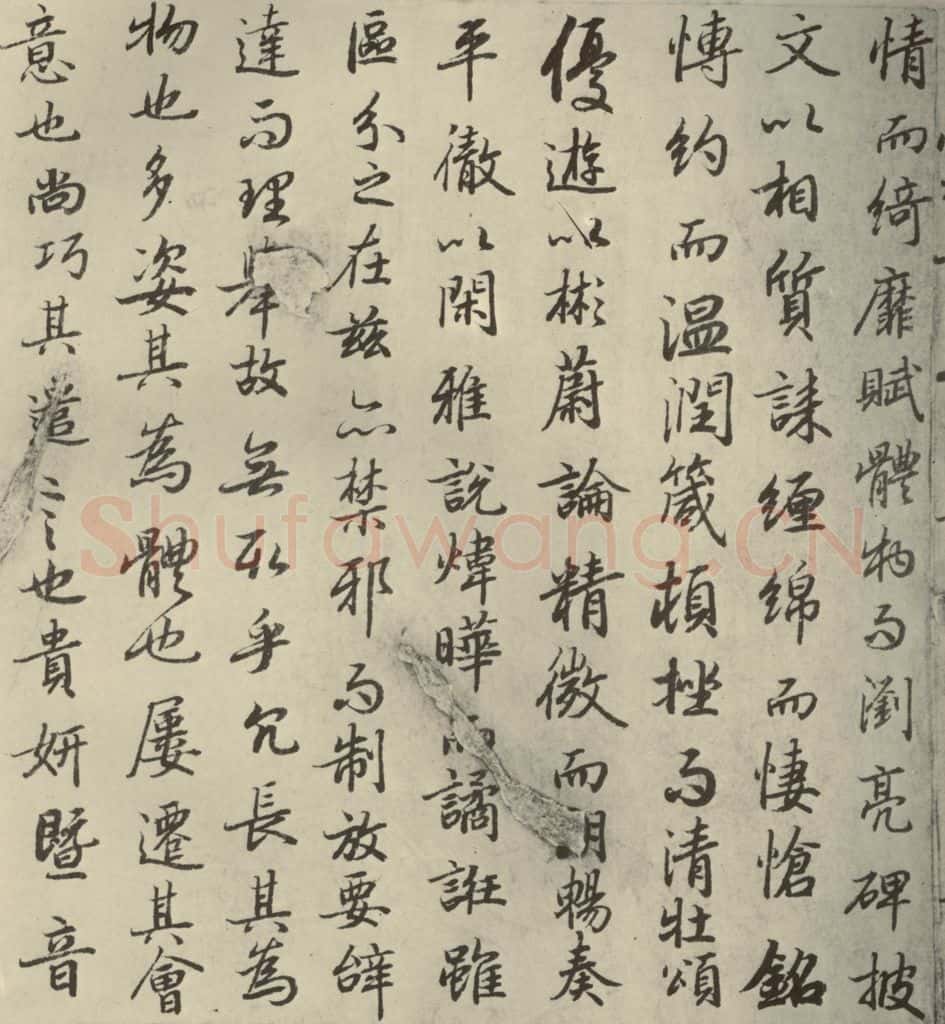 情而綺靡賦體物而瀏亮碑披
文以相質誄纏綿而悽愴銘
博約而温潤箴頓挫而清壯頌
優遊以彬蔚論精微而朗暢奏
平徹以閑雅說煒曄而譎誑雖
區分之在茲亦禁邪而制放要辭
達而理舉故無取乎冗長其為
物也多姿其為體也屢遷其會
意也尚巧其遣言也貴妍暨音
Shufawang.CN